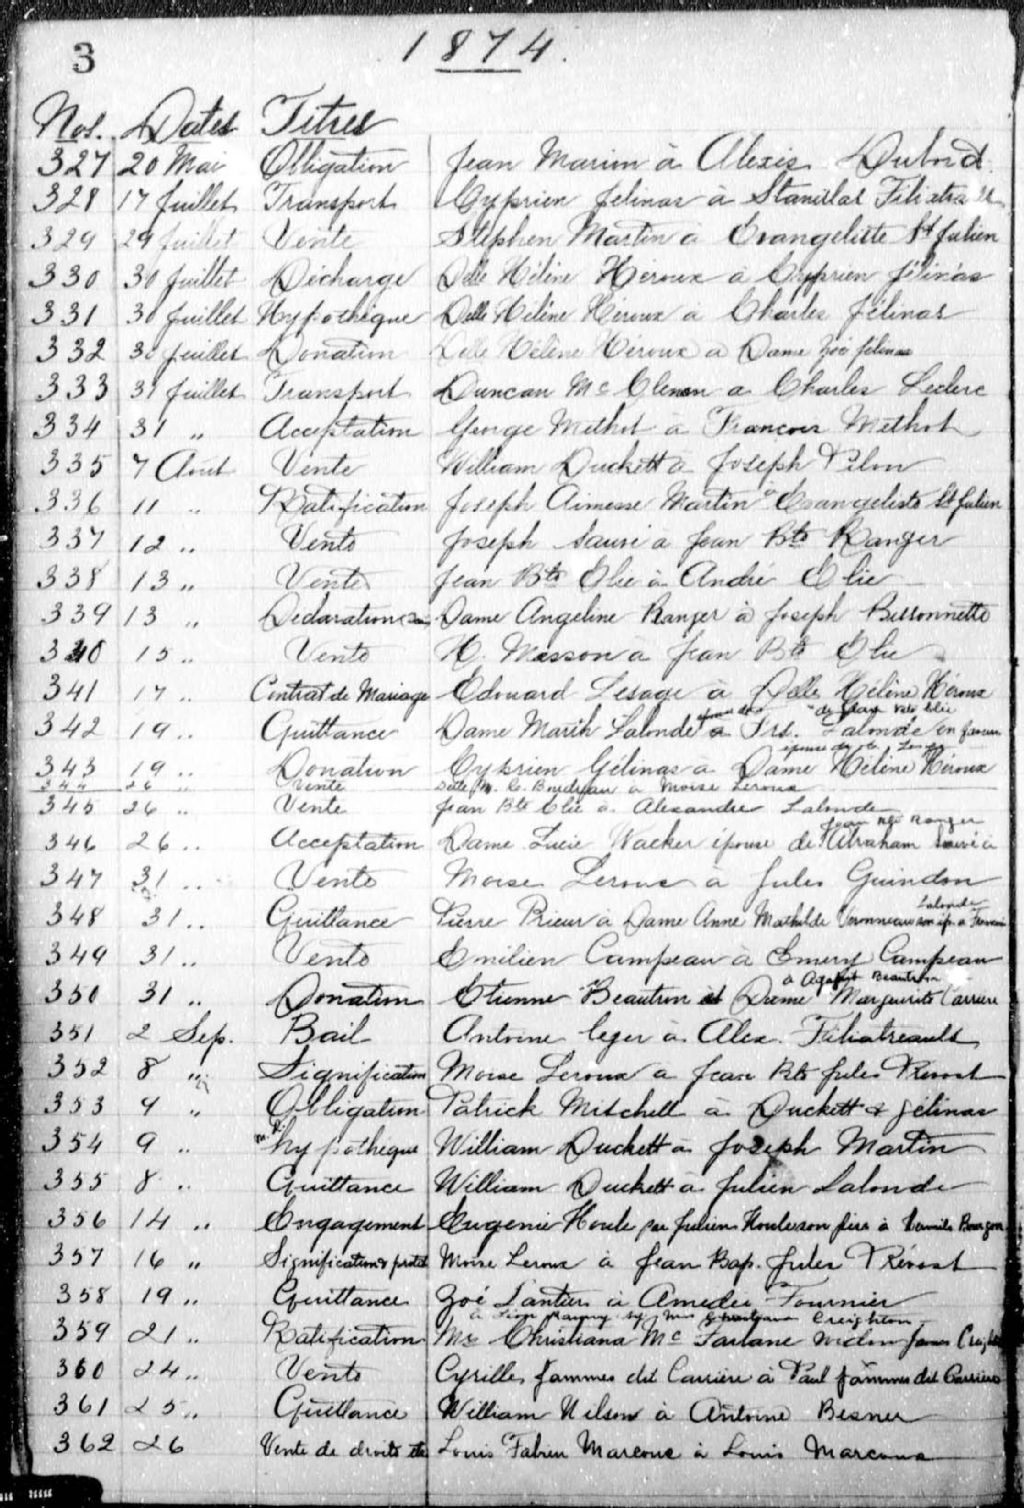 3
1874.
Nos. Dates Titres
327 20 Mai Obligation Jean Marion à Alexis
328 17 Juillet Transport Cyprien Gélinas à Stanislas
329 29 Juillet Vente Stephen Martin à Evangeliste St Julien
330 30 Juillet Décharge Delle Hélène Héroux à Cyprien Gélinas
331 30 Juillet Hypothèque Delle Hélène Héroux à Charles Gélinas
332 30 Juillet Donation Delle Hélène Héroux à Dame Zoé Gélinas
333 31 Juillet Transport Duncan Mc à Charles Leclerc
334 31 " Acceptation George Methot à Francois Methot
335 7 Août Vente William Duckett à Joseph Pilon
336 11 " Ratification Joseph Martin & Evangeliste St Julien
337 12 " Vente Joseph Sauvé à Jean Bte Ranger
338 13 " Vente Jean Bte Elie à André Elie
339 13 " Declaration Dame Angeline Ranger à Joseph Bissonnette
340 15 " Vente H. Masson à Jean Bte Elie
341 17 " Contrat de Mariage Edouard Lesage à Delle Hélène Héroux
de Jean Bte Elie
342 19 " Quittance Dame Marie Lalonde à Frs. Lalonde
343 19 " Donation Cyprien Gélinas à Dame Hélène Héroux
344 26 " Vente Delle M. C. à Moise Leroux
345 26 " Vente Jean Bte Elie à Alexandre Lalonde
Jean Bte Ranger
346 26 " Acceptation Dame Lucie Walker épouse de Abraham Sauvé à
347 31 " Vente Moise Leroux à Jules Guindon
Lalonde
348 31 " Quittance Pierre Prieur à Dame Anne Mathilde Veronneau
349 31 " Vente Emilien Campeau à Emery Campeau
à Beautron
350 31 " Donation Etienne Beautron et Dame Marguerite Carriere
351 2 Sep. Bail Antoine Leger à Alex. Filiatreault
352 8 " Signification Moise Leroux à Jean Bte Jules Prévost
353 9 " Obligation Patrick Mitchell à Duckett & Gélinas
354 9 " hypothèque William Duckett à Joseph Martin
355 8 " Quittance William Duckett à Julien Lalonde
356 14 " Engagement Eugenie Houle par Julien Houle son père à
357 16 " Signification & protet Moise Leroux à Jean Bap. Jules Prévost
358 19 " Quittance Zoé Lantier à Amedée Fournier
Creighton
359 21 " Ratification Christiana Mc Farlane widow James
360 24 " Vente Cyrille Jammes dit Carriere à Paul Jammes dit Carriere
361 25 " Quittance William Wilson à Antoine Besner
362 26 Vente de droits Louis Fabien Marcoux à Louis Marcoux